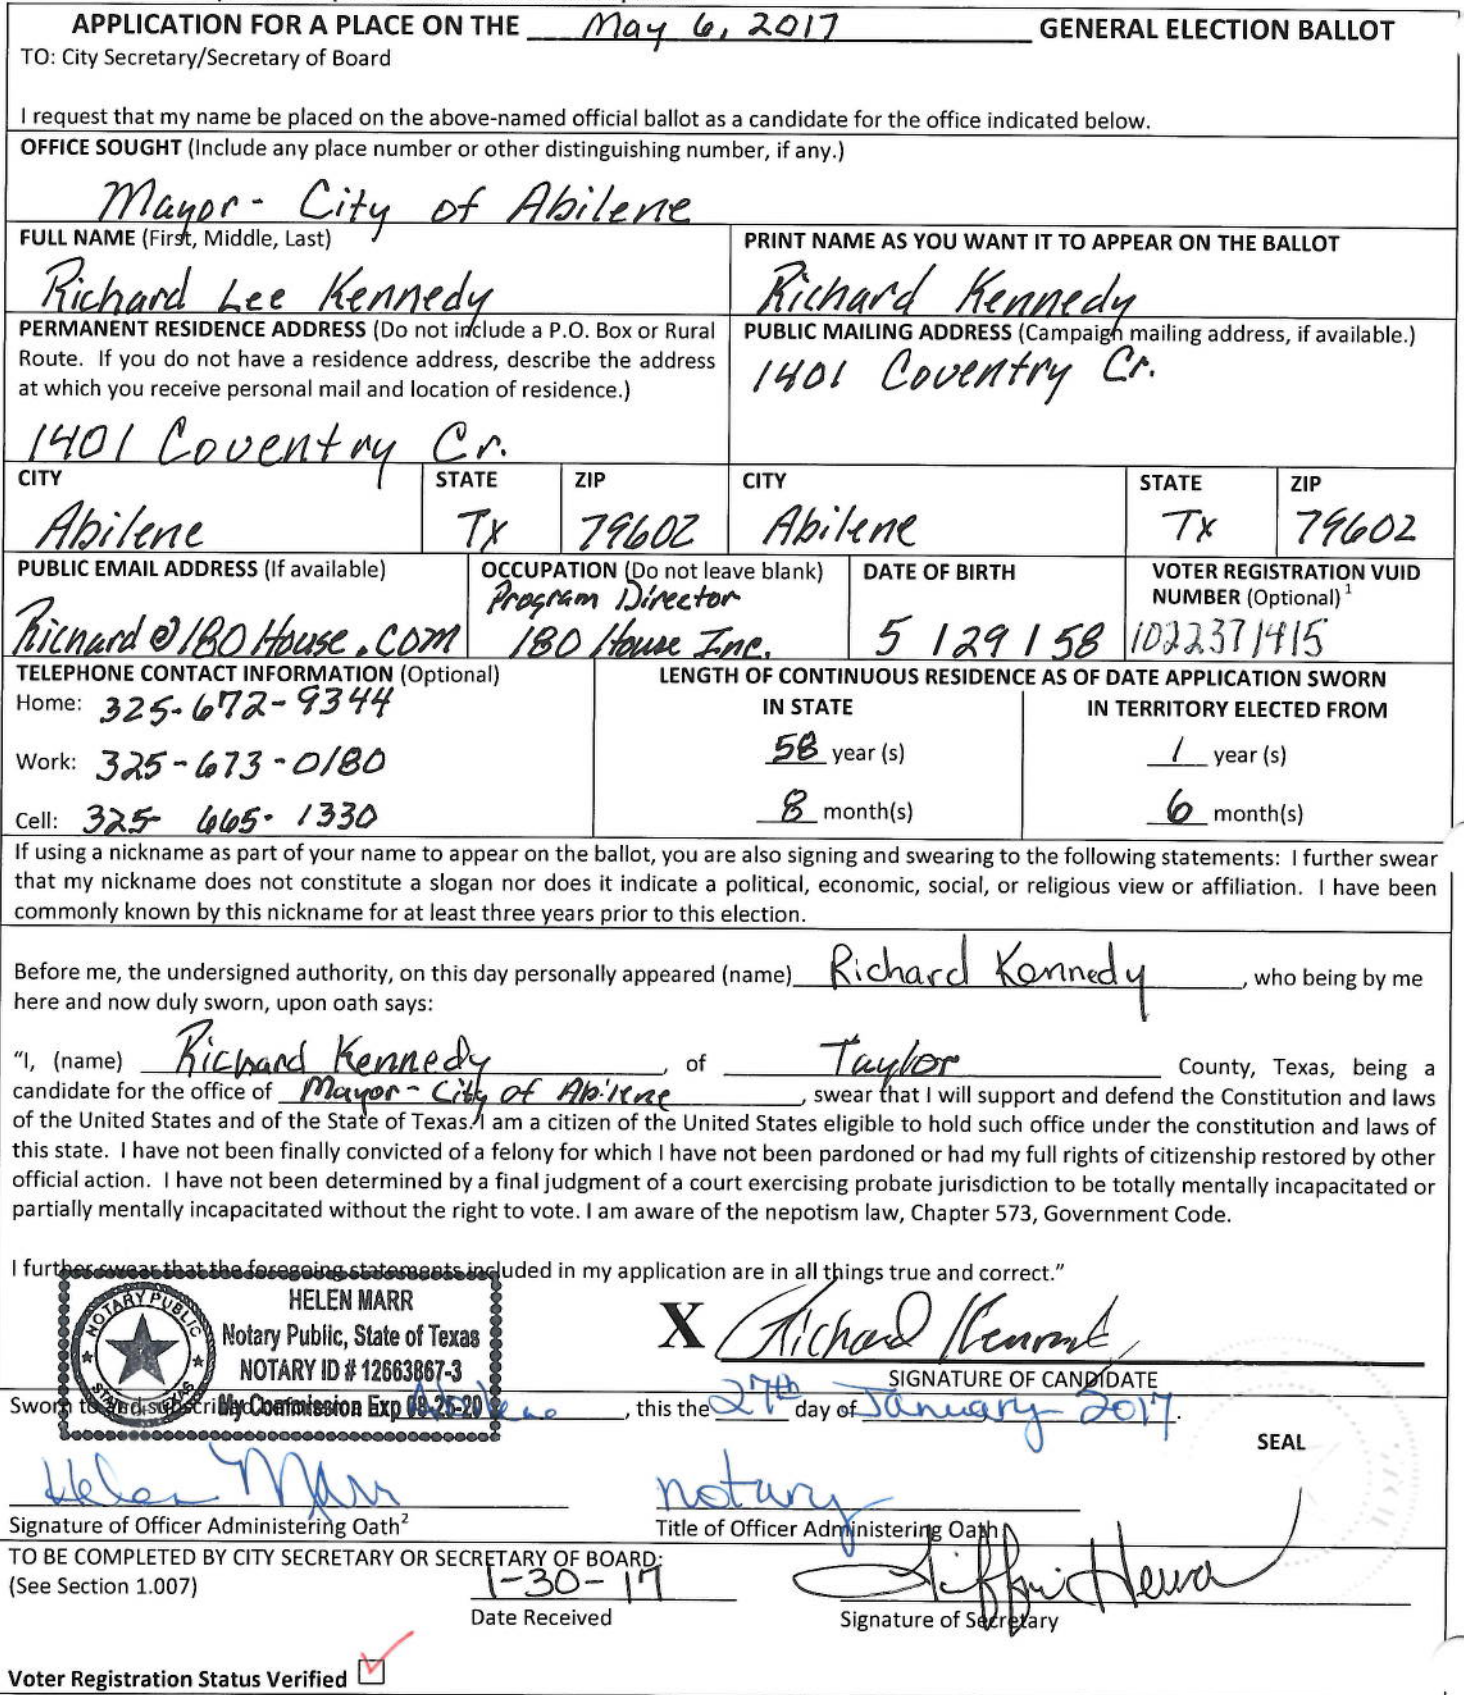 APPLICATION FOR A PLACE ON THE May 6, 2017 GENERAL ELECTION BALLOT
TO: City Secretary/Secretary of Board
I request that my name be placed on the above-named official ballot as a candidate for the office indicated below.
OFFICE SOUGHT (Include any place number or other distinguishing number, if any.)
Mayor - City of Abilene
FULL NAME (First, Middle, Last)
Richard Lee Kennedy
PRINT NAME AS YOU WANT IT TO APPEAR ON THE BALLOT
Richard Kennedy
PERMANENT RESIDENCE ADDRESS (Do not include a P.O. Box or Rural
Route. If you do not have a residence address, describe the address
at which you receive personal mail and location of residence.)
1401 Coventry Cr.
PUBLIC MAILING ADDRESS (Campaign mailing address, if available.)
1401 Coventry Cr.
CITY STATE ZIP CITY STATE ZIP
Abilene Tx 79602 Abilene Tx 79602
PUBLIC EMAIL ADDRESS (If available)
Richard@180House.com
OCCUPATION (Do not leave blank)
Program Director
180 House Inc.
DATE OF BIRTH
5 / 29 / 58
VOTER REGISTRATION VUID
NUMBER (Optional)¹
1022371415
TELEPHONE CONTACT INFORMATION (Optional)
Home: 325-672-9344
Work: 325-673-0180
Cell: 325- 665- 1330
LENGTH OF CONTINUOUS RESIDENCE AS OF DATE APPLICATION SWORN
IN STATE IN TERRITORY ELECTED FROM
58 year (s) 1 year (s)
8 month(s) 6 month(s)
If using a nickname as part of your name to appear on the ballot, you are also signing and swearing to the following statements: I further swear
that my nickname does not constitute a slogan nor does it indicate a political, economic, social, or religious view or affiliation. I have been
commonly known by this nickname for at least three years prior to this election.
Before me, the undersigned authority, on this day personally appeared (name) Richard Kennedy, who being by me
here and now duly sworn, upon oath says:
"I, (name) Richard Kennedy, of Taylor County, Texas, being a
candidate for the office of Mayor - City of Abilene, swear that I will support and defend the Constitution and laws
of the United States and of the State of Texas. I am a citizen of the United States eligible to hold such office under the constitution and laws of
this state. I have not been finally convicted of a felony for which I have not been pardoned or had my full rights of citizenship restored by other
official action. I have not been determined by a final judgment of a court exercising probate jurisdiction to be totally mentally incapacitated or
partially mentally incapacitated without the right to vote. I am aware of the nepotism law, Chapter 573, Government Code.
I further swear that the foregoing statements included in my application are in all things true and correct."
HELEN MARR
Notary Public, State of Texas
NOTARY ID # 12663867-3
My Commission Exp 08-25-20
NOTARY PUBLIC
STATE OF TEXAS
X Richard Kennedy
SIGNATURE OF CANDIDATE
Sworn to and subscribed Abilene, this the 27th day of January 2017.
SEAL
Helen Marr notary
Signature of Officer Administering Oath² Title of Officer Administering Oath
TO BE COMPLETED BY CITY SECRETARY OR SECRETARY OF BOARD:
(See Section 1.007) 1-30-17
Date Received Signature of Secretary
Voter Registration Status Verified